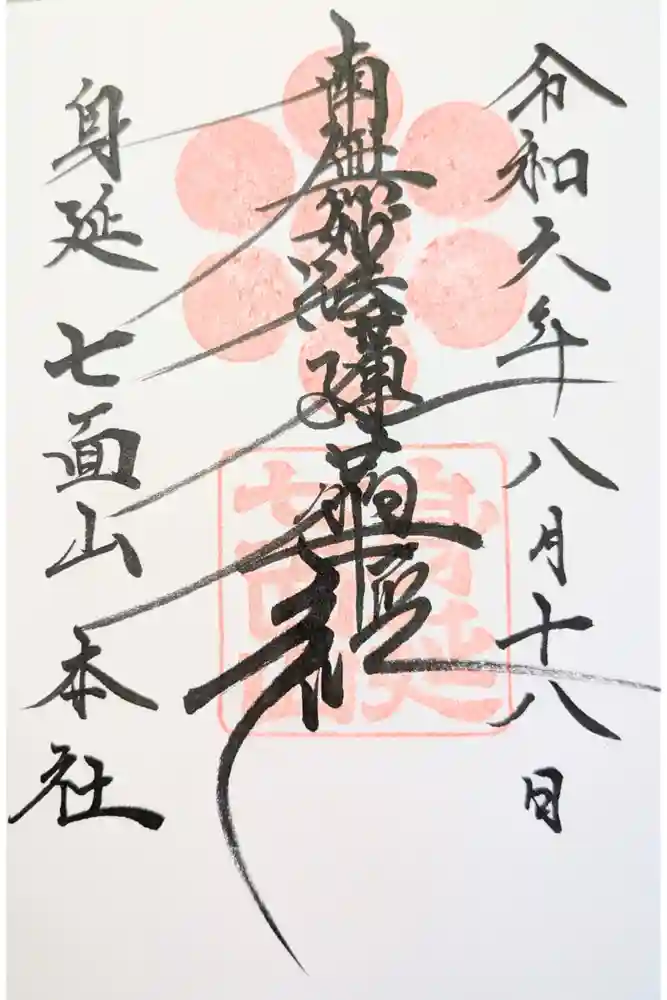 令和六年八月十八日
南無妙法蓮華経
身延 七面山 本社
身延
七面山